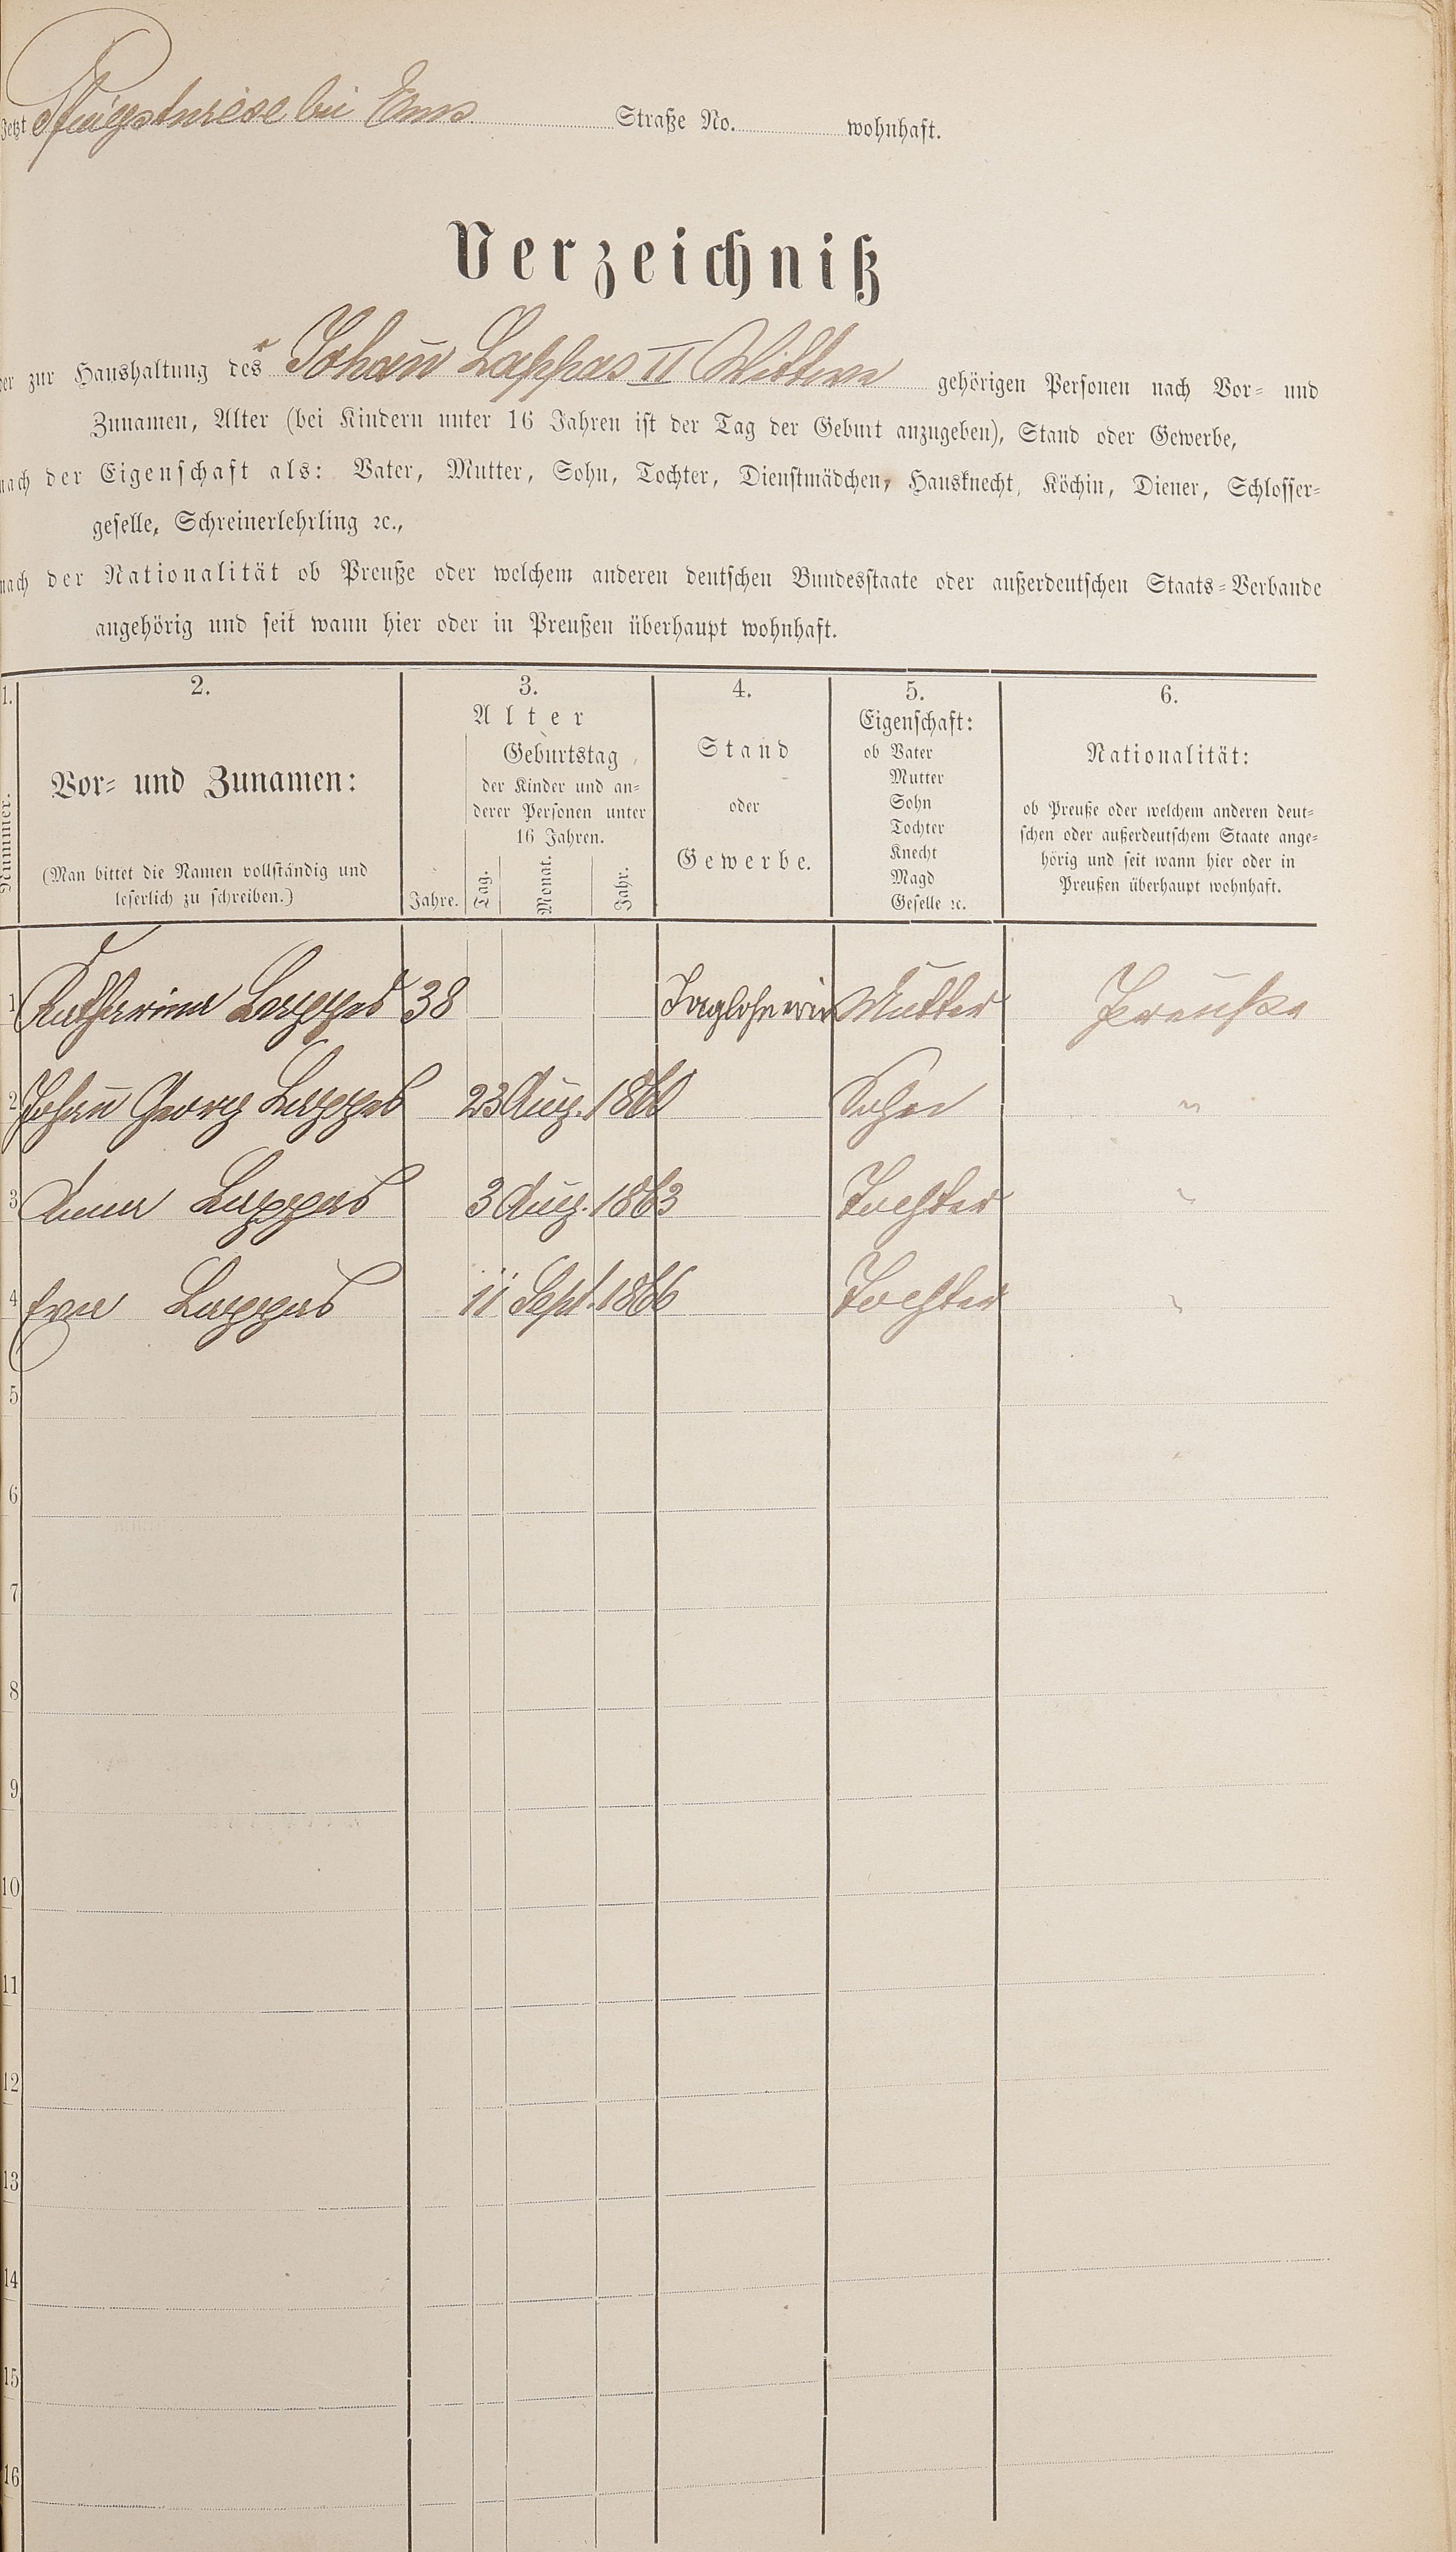 Jetzt Pfingstwiese bei Ems Straße No. wohnhaft.
Verzeichniß
der zur Haushaltung des Johañ Lappas II Wittwe gehörigen Personen nach Vor- und
Zunamen, Alter (bei Kindern unter 16 Jahren ist der Tag der Geburt anzugeben), Stand oder Gewerbe,
nach der Eigenschaft als: Vater, Mutter, Sohn, Tochter, Dienstmädchen, Hausknecht, Köchin, Diener, Schlosser-
geselle, Schreinerlehrling ꝛc.,
nach der Nationalität ob Preuße oder welchem anderen deutschen Bundesstaate oder außerdeutschen Staats-Verbande
angehörig und seit wann hier oder in Preußen überhaupt wohnhaft.
1.
Nummer.
2.
Vor- und Zunamen:
(Man bittet die Namen vollständig und
leserlich zu schreiben.)
3.
Alter
Geburtstag
der Kinder und an-
derer Personen unter
16 Jahren.
Jahre. Tag. Monat. Jahr.
4.
Stand
oder
Gewerbe.
5.
Eigenschaft:
ob Vater
Mutter
Sohn
Tochter
Knecht
Magd
Geselle ꝛc.
6.
Nationalität:
ob Preuße oder welchem anderen deut-
schen oder außerdeutschem Staate ange-
hörig und seit wann hier oder in
Preußen überhaupt wohnhaft.
1 Katharina Lappas 38 Taglohnerin Mutter Preuße
2 Johañ Georg Lappas 23 Aug. 1860 Sohn "
3 Anna Lappas 3 Aug. 1863 Tochter "
4 Eva Lappas 11 Sept. 1866 Tochter "
5
6
7
8
9
10
11
12
13
14
15
16